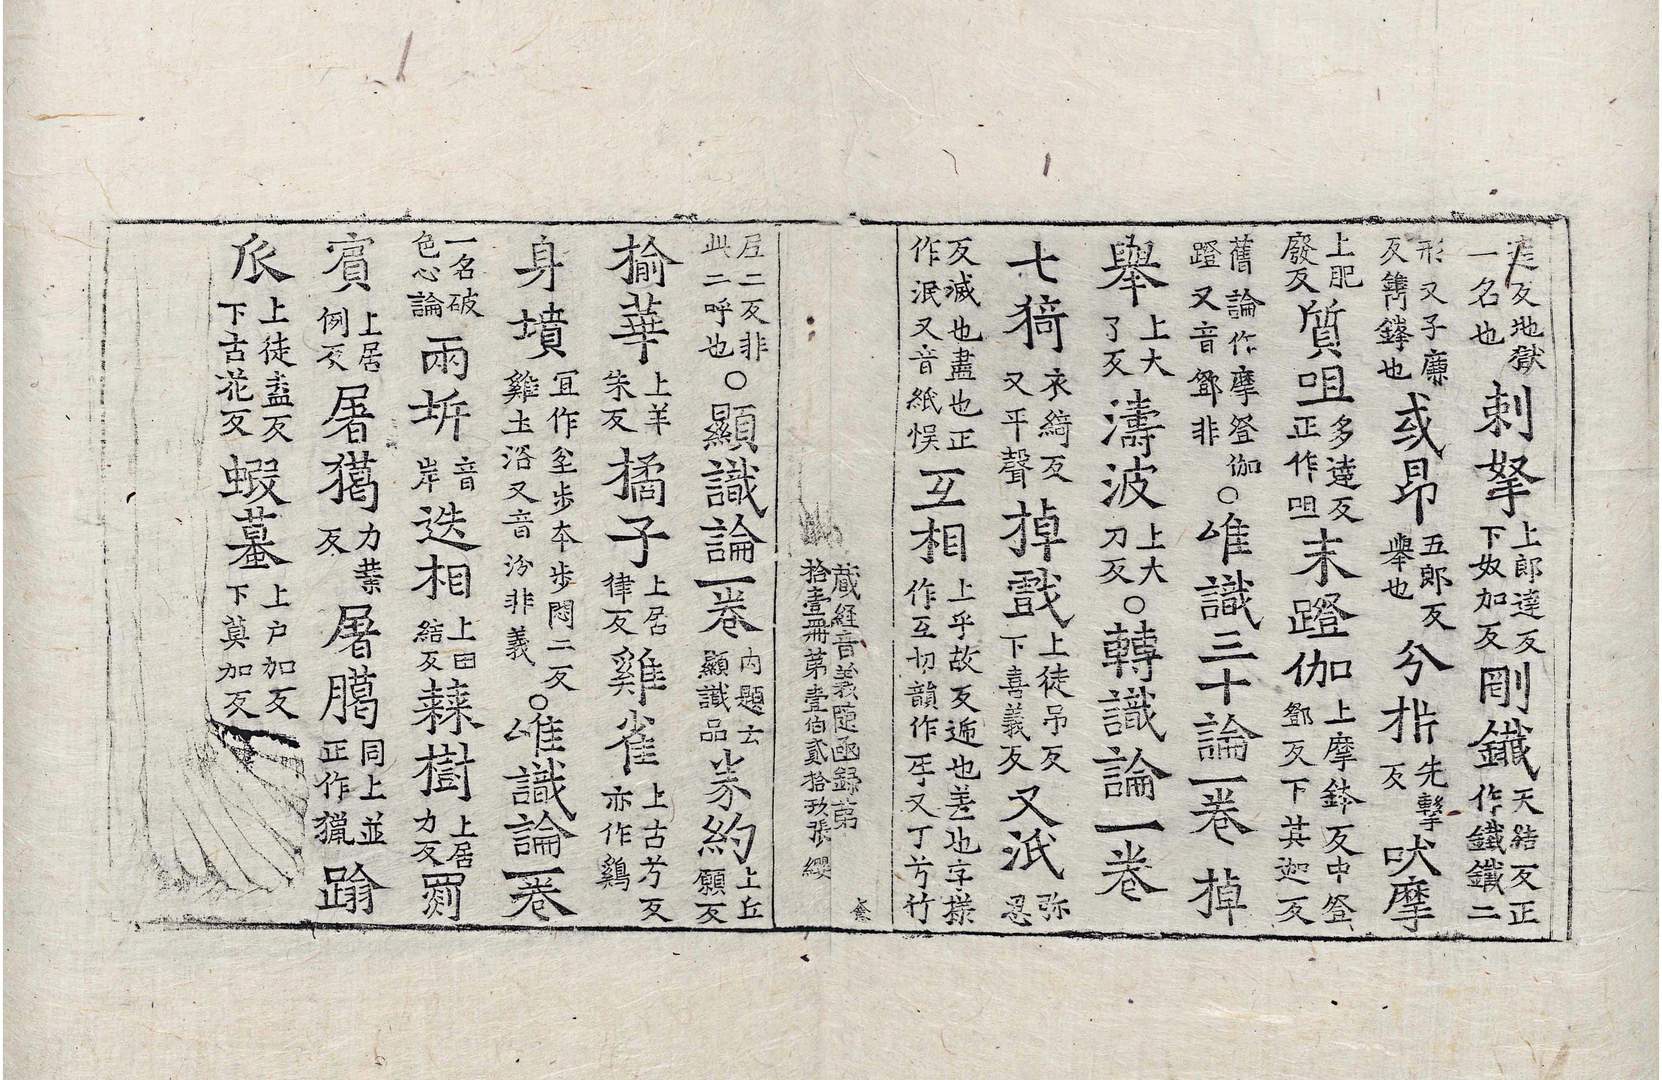 达反地獄一名也刺拏上郎達反下奴加反剛鐵天結反正作鐵鐵二
形又子廉反鐫鋒也或昂五郎反舉也兮㭊先擊反吠摩
上肥廢反質咀多達反正作呾末蹬伽上摩鉢反中登鄧反下其迦反
舊論作摩登伽蹬又音鄧非○唯識三十論一卷掉
舉上大了反濤波上大刀反○轉識論一卷
七猗衣綺反又平聲掉戲上徒吊反下喜義反又泯弥忍
反滅也盡也正作泯又音紙悮互相上乎故反遞也差也字樣作互切韻作㸦又丁兮竹
藏經音義隨函録第
拾壹册第壹伯貳拾玖張 纓
尼二反非此二呼也○顯識論一卷内題云顯識品券約上丘願反
揄華上羊朱反橘子上居律反雞雀上古兮反亦作鷄
身墳冝作坌步夲步悶二反雞圡浴又音汾非義○唯識論一卷
一名破色心論兩㘹音岸迭相上田結反棘樹上居力反罽
賓上居例反屠獦力葉反屠臈同上並正作獵蹹
𤓰上徒盍反下古花反蝦蟇上户加反下莫加反